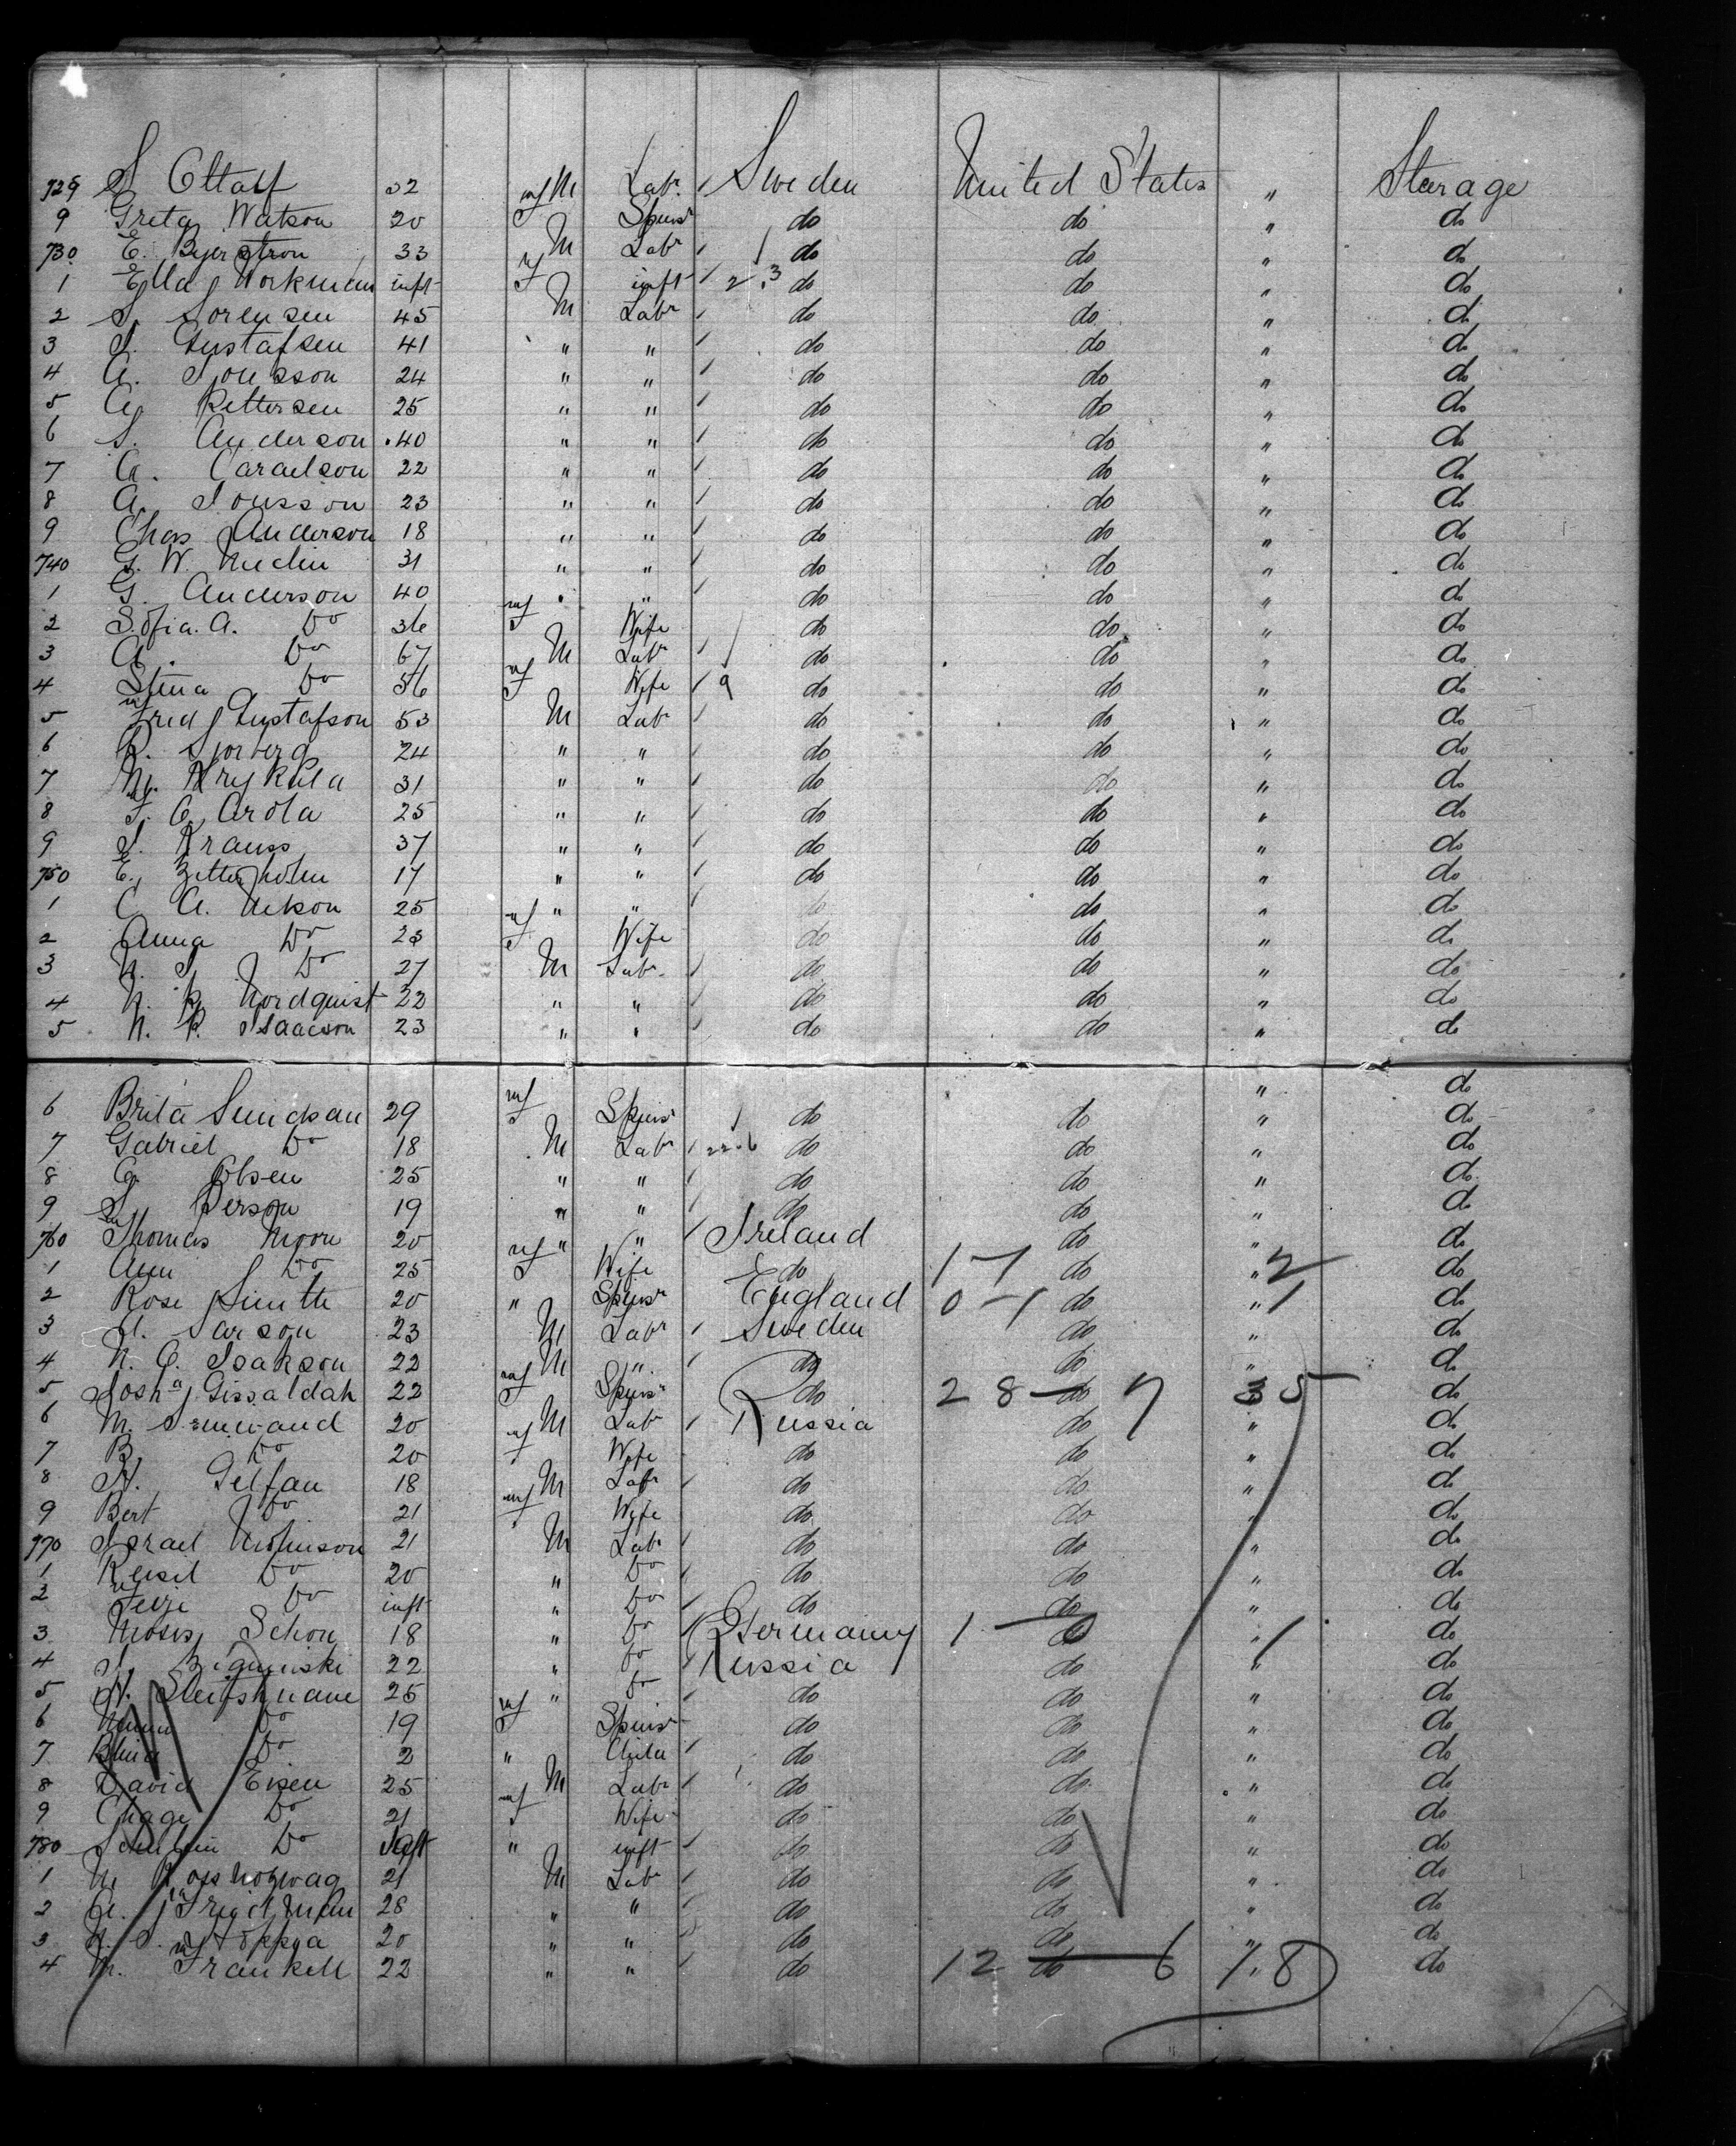 729 S Ottalf 32 M Labr Sweden United States " Starage
9 Greta Watson 20 f Spinsr do do " do
730 E. Byerstron 33 M Labr do do " do
1 Ella Workman inft f inft 2.3 do do " do
2 S. Sorensen 45 M Labr do do " do
3 S. Gustafsen 41 " " do do " do
4 A. Jonsson 24 " " do do " do
5 A. Pettersen 25 " " do do " do
6 S. Anderson 40 " " do do " do
7 A. Caraelson 22 " " do do " do
8 A. Jonsson 23 " " do do " do
9 Chas Anderson 18 " " do do " do
740 G. W. 31 " " do do " do
1 G. Anderson 40 " " do do " do
2 Sofia. A. Do 36 f Wife do do " do
3 A. Do 67 M Labr do do " do
4 Stina Do 56 f Wife 9 do do " do
5 Fred Gustafson 53 M Labr do do " do
6 R. Sjorberg 24 " " do do " do
7 M. Krykula 31 " " do do " do
8 F. A. Arola 25 " " do do " do
9 S. Krauss 37 " " do do " do
750 E. Zetterholm 17 " " do do " do
1 C A. 25 " " do do " do
2 Anna Do 23 f Wife do do " do
3 N. J. Do 27 M Labr do do " do
4 N. P. Nordquist 22 " " do do " do
5 N. P. Isaacson 23 " " do do " do
" do
6 Brita 29 f Spinsr do do " do
7 Gabriel Do 18 M Labr 22-6 do do " do
8 G. Olsen 25 " " do do " do
9 S. Person 19 " " do do " do
760 Thomas Moore 20 " " Ireland do " do
1 Ann Do 25 f Wife do 1-1 do " 2 do
2 Rose Smith 20 " Spinsr England 0-1 do " 1 do
3 A. Larson 23 M Labr Sweden do " do
4 N. O. Isakson 22 M " do do " do
5 Josha Gissaldah 22 f Spinsr do 28-7 do 35 do
6 M. 20 M Labr Russia do " do
7 B Do 20 f Wife do do " do
8 H. Gelfan 18 M Labr do do " do
9 Bert Do 21 f Wife do do " do
770 Israel 21 M Labr do do " do
1 Reisil Do 20 " Do do do " do
2 Do inft " Do do do " do
3 Moses Schon 18 " Do Germany 1-0 do " 1 do
4 22 " Do Russia do " do
5 H. 25 " Do do do " do
6 Do 19 f Spinsr do do " do
7 Do 2 " Child do do " do
8 David Eisen 25 M Labr do do " do
9 Chage Do 21 f Wife do do " do
780 Do Inft " inft do do " do
1 M 21 M Labr do do " do
2 A. Friedman 28 " " do do " do
3 20 " " do do " do
4 M. Frankell 22 " " do 12-6 do 18 do